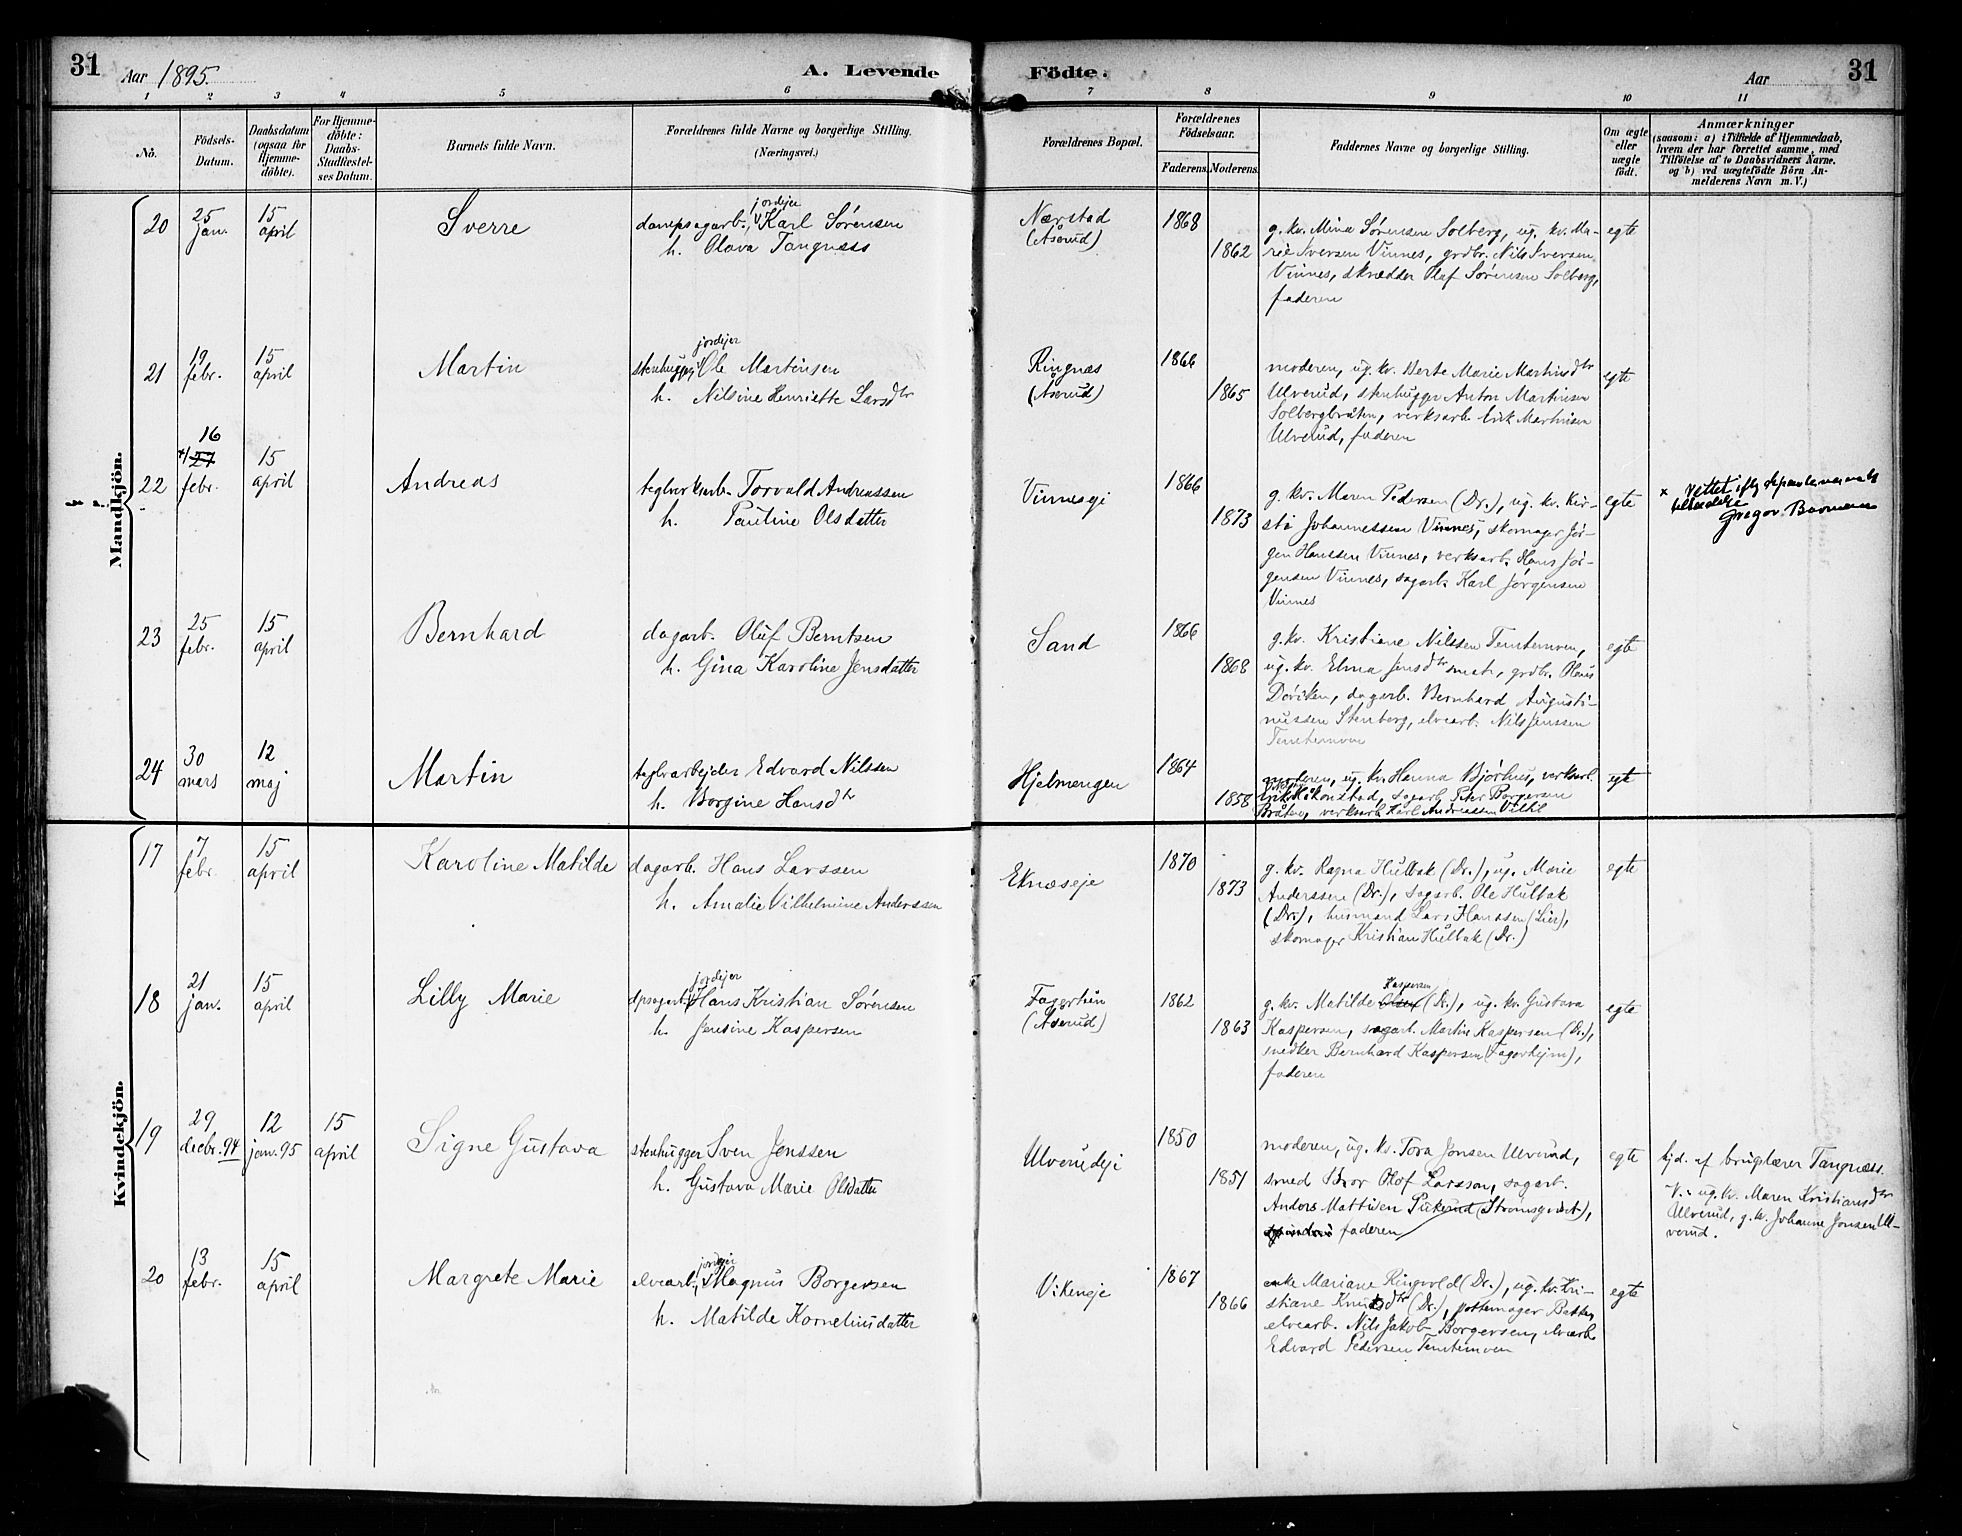 31
Aar 1895.
A. Levende
Födte.
Aar
31
1 2 3 4 5 6 7 8 9 10 11
No.
Födsels-
Datum.
Daabsdatum
(ogsaa for
Hjemme-
döbte).
For Hjemme-
döbte:
Daabs-
Stadfæstel-
ses Datum.
Barnets fulde Navn.
Forældrenes fulde Navne og borgerlige Stilling.
(Næringsvei.)
Forældrenes Bopæl.
Forældrenes
Födselsaar.
Faderens. Moderens.
Faddernes Navne og borgerlige Stilling.
Om ægte
eller
uægte
födt.
Anmærkninger
(saasom: a) i Tilfælde af Hjemmedaab,
hvem der har forrettet samme, med
Tilföielse af to Daabsvidners Navne.
og b) ved uægtefödte Börn An-
melderens Navn m. V.)
Mandkjön.
20
25
jan.
15
april
Sverre
jordejer
dampsagarb., Karl Sørensen
h. Olava Tangnæss
Nærstad
(Åserud)
1868
1862
g. kv. Mina Sørensen Solberg, ug. kv. Ma-
rie Iversen Vinnes, grdbr. Nils Iversen
Vinnes, skrædder Olaf Sørensen Solberg,
faderen
egte
21
19
febr.
15
april
Martin
jordejer
stenhugger, Ole Martinsen
h. Nilsine Henriette Larsdtr
Ringnæs
(Åserud)
1866
1865
moderen, ug. kv. Berte Marie Martinsdtr
Ulverud, stenhugger Anton Martinsen
Solbergbråten, verksarb. Erik Martinsen
Ulverud, faderen
egte
22
16
27
febr.
15
april
Andreas
teglverksarb. Torvald Andreassen
h. Pauline Olsdatter
Vinneseje
1866
1873
g. kv. Maren Pedersen (Dr.), ug. kv. Kir-
sti Johannessen Vinnes, skomager Jør-
gen Hanssen Vinnes, verksarb. Hans Jør-
gensen Vinnes, sagarb. Karl Jørgensen
Vinnes
egte
x rettet iflg departementets
Gregor
23
25
febr.
15
april
Bernhard
dagarb. Oluf Berntsen
h. Gina Karoline Jensdatter
Sand
1866
1868
g. kv. Kristiane Nilssen Temtemoen,
ug. kv. Elma Jensdtr smst., grdbr. Olaus
Døviken, dagarb. Bernhard Augusti-
nussen Stenberg, elvearb. Nils Jenssen
Temtemoen
egte
24
30
mars
12
maj
Martin
teglvarbejder Edvard Nilssen
h. Borgine Hansdtr
Hjelmengen
1864
1858
moderen, ug. kv. Hanna Bjørhus, verksarb.
Erik Håkonstad, sagarb. Peter Borgersen
Bråten, verksarb. Karl Andreassen
egte
Kvindekjön.
17
7
febr.
15
april
Karoline Matilde
dagarb. Hans Larssen
h. Amalie Vilhelmine Anderssen
Eknæseje
1870
1873
g. kv. Ragna Hulbak (Dr.), ug. Marie
Anderssen (Dr.), sagarb. Ole Hulbak
(Dr.), husmand Lars Hanssen (Lier),
skomager Kristian Hulbak (Dr.)
egte
18
21
jan.
15
april
Lilly Marie
jordejer
dpsagarb. Hans Kristian Sørensen
h. Jensine Kaspersen
(Åserud)
1862
1863
Kaspersen
g. kv. Matilde (Dr.), ug. kv. Gustava
Kaspersen, sagarb. Martin Kaspersen (Dr.),
snedker Bernhard Kaspersen (Fagerhejm),
faderen
egte
19
29
decbr. 94
12
jan. 95
15
april
Signe Gustava
stenhugger Sven Jenssen
h. Gustava Marie Olsdatter
Ulverudeje
1850
1851
moderen, ug. kv. Tora Jonsen Ulverud,
smed Bror Olof Larsson, sagarb.
Anders Mattisen Pukerud (Strømsgodset),
faderen
egte
hjd. af brugslærer Tangnæss.
V.: ug. kv. Maren Kristiansdtr
Ulverud, g. kv. Johanne Jonsen Ul-
verud.
20
13
febr.
15
april
Margrete Marie
jordejer
elvearb., Magnus Borgersen
h. Matilde Korneliusdatter
Vikeneje
1867
1866
enke Mariane Ringvold (Dr.), ug. kv. Kri-
stiane Knutsdtr (Dr.), pottemager Bakke,
elvearb. Nils Jakob Borgersen, elvearb.
Edvard Pedersen Temtemoen
egte